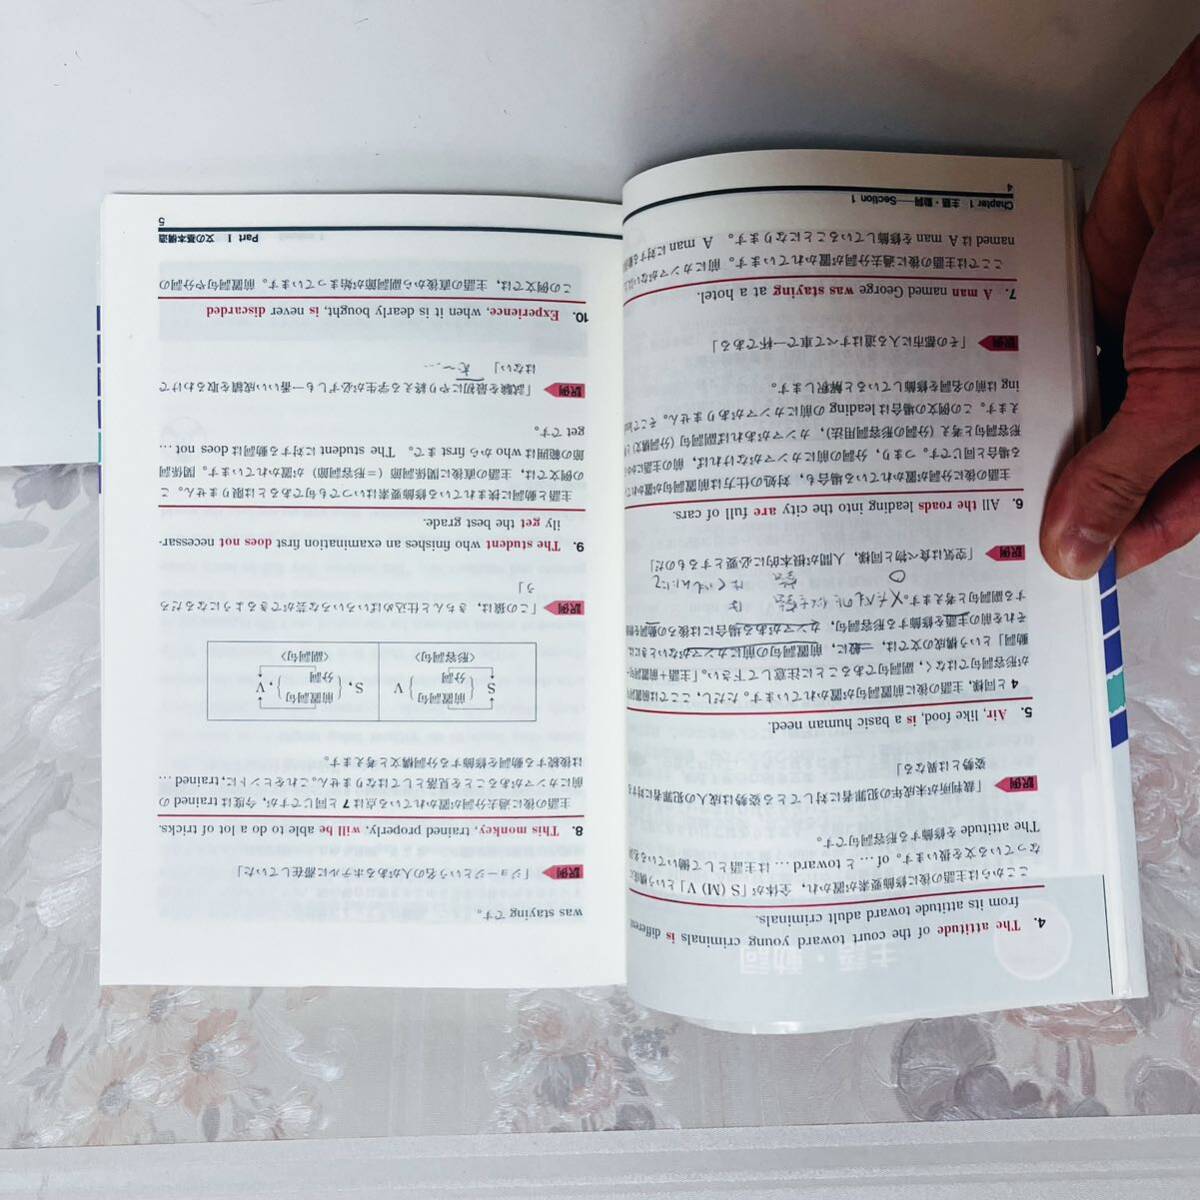 Chapter 1 主語・動詞——Section 1
4
4. The attitude of the court toward young criminals is different
from its attitude toward adult criminals.
ここからは主語の後に修飾要素が置かれ，全体が「S (MD) V」という構成に
なっている文を扱います。of … と toward … は主語として働いている名詞
The attitude を修飾する形容詞句です。
訳例 「裁判所が未成年の犯罪者に対してとる姿勢は成人の犯罪者に対する
姿勢とは異なる」
5. Air, like food, is a basic human need.
4 と同様，主語の後に前置詞句が置かれています。ただし，ここでは前置詞句
が形容詞句ではなく，副詞句であることに注意して下さい。「主語＋前置詞句＋
動詞」という構成の文では，一般に，前置詞句の前にカンマがないときには
それを前の主語を修飾する形容詞句，カンマがある場合には後ろの動詞を修飾
する副詞句と考えます。
訳例 「空気は食べ物と同様，人間が根本的に必要とするものだ」
6. All the roads leading into the city are full of cars.
主語の後に分詞が置かれている場合も，対処の仕方は前置詞句が置かれている
場合と同じです。つまり，分詞の前にカンマがなければ，前の主語を
形容詞句と考え（分詞の形容詞用法），カンマがあれば副詞句（分詞構文）と
えます。この例文の場合は leading の前にカンマがありません。そこで
ing は前の名詞を修飾していると解釈します。
訳例 「その都市に入る道はすべて車で一杯である」
7. A man named George was staying at a hotel.
ここでは主語の後に過去分詞が置かれています。前にカンマがない
named は A man を修飾していることになります。A man に対する
Part 1 文の基本構造
5
was staying です。
訳例 「ジョージという名の人があるホテルに滞在していた」
8. This monkey, trained properly, will be able to do a lot of tricks.
主語の後に過去分詞が置かれている点は 7 と同じですが，今度は trained の
前にカンマがあることを見落としてはなりません。これをヒントに，trained …
は後続する動詞を修飾する分詞構文と考えます。
S {前置詞句 分詞} V
〈形容詞句〉
S, {前置詞句 分詞}, V
〈副詞句〉
訳例 「この猿は，きちんと仕込めばいろいろな芸ができるようになるだろ
う」
9. The student who finishes an examination first does not necessar-
ily get the best grade.
主語と動詞に挟まれている修飾要素はいつでも句であるとは限りません。こ
の例文では，主語の直後に関係詞節（＝形容詞節）が置かれています。関係詞
節の範囲は who から first まで。The student に対する動詞は does not …
get です。
訳例 「試験を最初にやり終える学生が必ずしも一番いい成績を取るわけで
はない」
10. Experience, when it is dearly bought, is never discarded
この例文では，主語の直後から副詞節が始まっています。前置詞句や分詞の